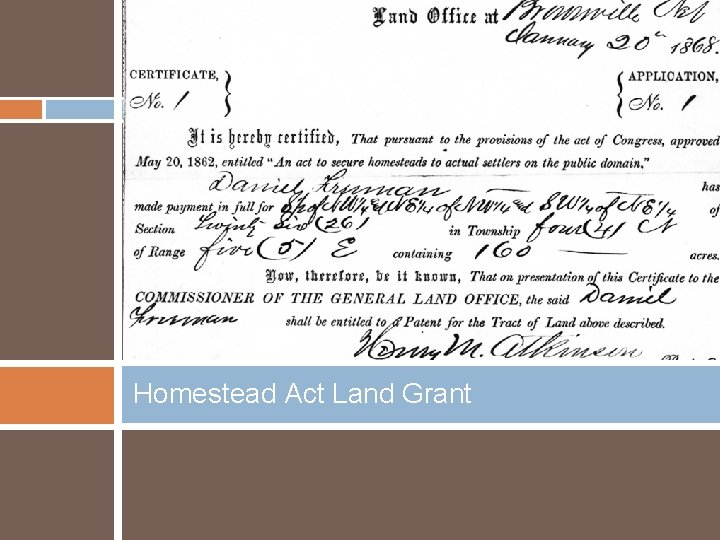 Land Office at Brownville Neb
January 20th 1868.
CERTIFICATE, No. 1
APPLICATION, No. 1
It is hereby certified, That pursuant to the provisions of the act of Congress, approved
May 20, 1862, entitled "An act to secure homesteads to actual settlers on the public domain,"
Daniel Freeman has
made payment in full for S½ of NW¼ & NE¼ of NW¼ and SW¼ of NE¼ of
Section Twenty six (26) in Township four (4) N
of Range five (5) E containing 160 acres.
Now, therefore, be it known, That on presentation of this Certificate to the
COMMISSIONER OF THE GENERAL LAND OFFICE, the said Daniel
Freeman shall be entitled to a Patent for the Tract of Land above described.
Henry M. Atkinson
Homestead Act Land Grant